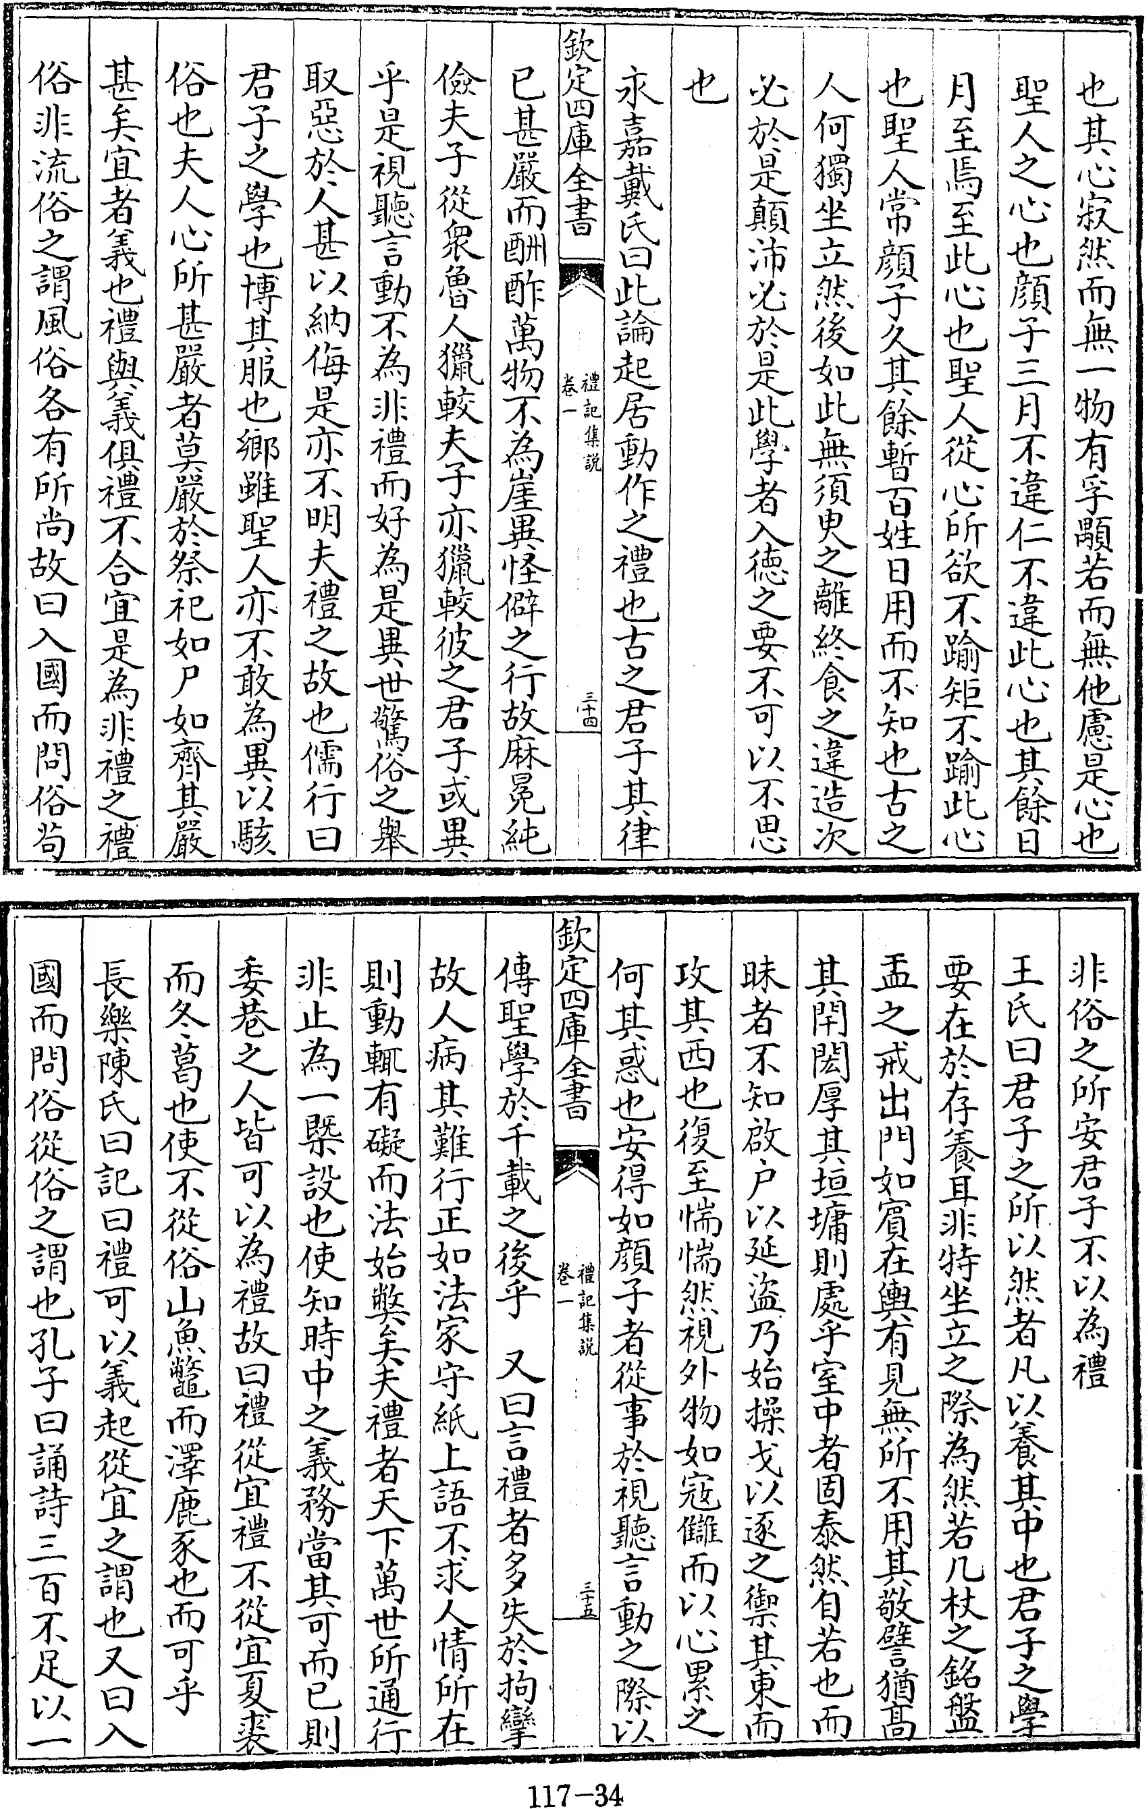 也其心寂然而無一物有孚顒若而無他慮是心也
聖人之心也顔子三月不違仁不違此心也其餘日
月至焉至此心也聖人從心所欲不踰矩不踰此心
也聖人常顔子久其餘暫百姓日用而不知也古之
人何獨坐立然後如此無須臾之離終食之違造次
必於是顛沛必於是此學者入徳之要不可以不思
也
永嘉戴氏曰此論起居動作之禮也古之君子其律
欽定四庫全書
禮記集説
卷一
三十四
已甚嚴而酬酢萬物不為崖異怪僻之行故麻冕純
儉夫子從衆魯人獵較夫子亦獵較彼之君子或異
乎是視聽言動不為非禮而好為是異世驚俗之舉
取惡於人甚以納侮是亦不明夫禮之故也儒行曰
君子之學也博其服也鄉雖聖人亦不敢為異以駭
俗也夫人心所甚嚴者莫嚴於祭祀如尸如齊其嚴
甚矣宜者義也禮與義俱禮不合宜是為非禮之禮
俗非流俗之謂風俗各有所尚故曰入國而問俗茍
非俗之所安君子不以為禮
王氏曰君子之所以然者凡以養其中也君子之學
要在於存養耳非特坐立之際為然若几杖之銘盤
盂之戒出門如賓在輿有見無所不用其敬譬猶髙
其閈閎厚其垣墉則處乎室中者固泰然自若也而
昧者不知啟户以延盜乃始操戈以逐之禦其東而
攻其西也復至惴惴然視外物如寇讎而以心累之
何其惑也安得如顔子者從事於視聽言動之際以
欽定四庫全書
禮記集説
卷一
三十五
傳聖學於千載之後乎 又曰言禮者多失於拘攣
故人病其難行正如法家守紙上語不求人情所在
則動輒有礙而法始弊矣夫禮者天下萬世所通行
非止為一槩設也使知時中之義務當其可而已則
委巷之人皆可以為禮故曰禮從宜禮不從宜夏裘
而冬葛也使不從俗山魚鼈而澤鹿豕也而可乎
長樂陳氏曰記曰禮可以義起從宜之謂也又曰入
國而問俗從俗之謂也孔子曰誦詩三百不足以一
117-34